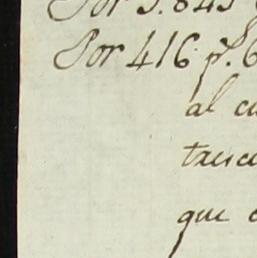 Por 5.845
Por 416 p.s 6
al cu
que